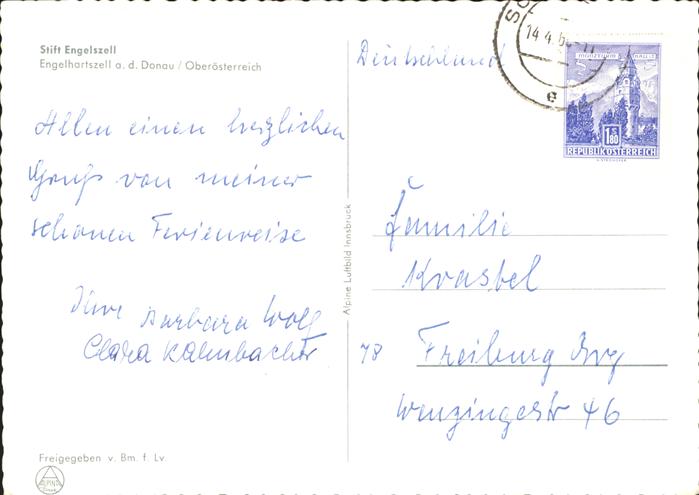 Stift Engelszell
Engelhartszell a. d. Donau / Oberösterreich
Allen einen herzlichen
Gruß von meiner
schönen Ferienreise
Ihre Barbara Wolf
Clara Kalmbacher
Freigegeben v. Bm. f. Lv.
ALPINE
Alpine Luftbild Innsbruck
Deutschland
14.4.6
e
MÜNZTURM HALL I. T.
S 1.80
REPUBLIK ÖSTERREICH
Familie
Krastel
78 Freiburg Brg
Wenzingerstr 46